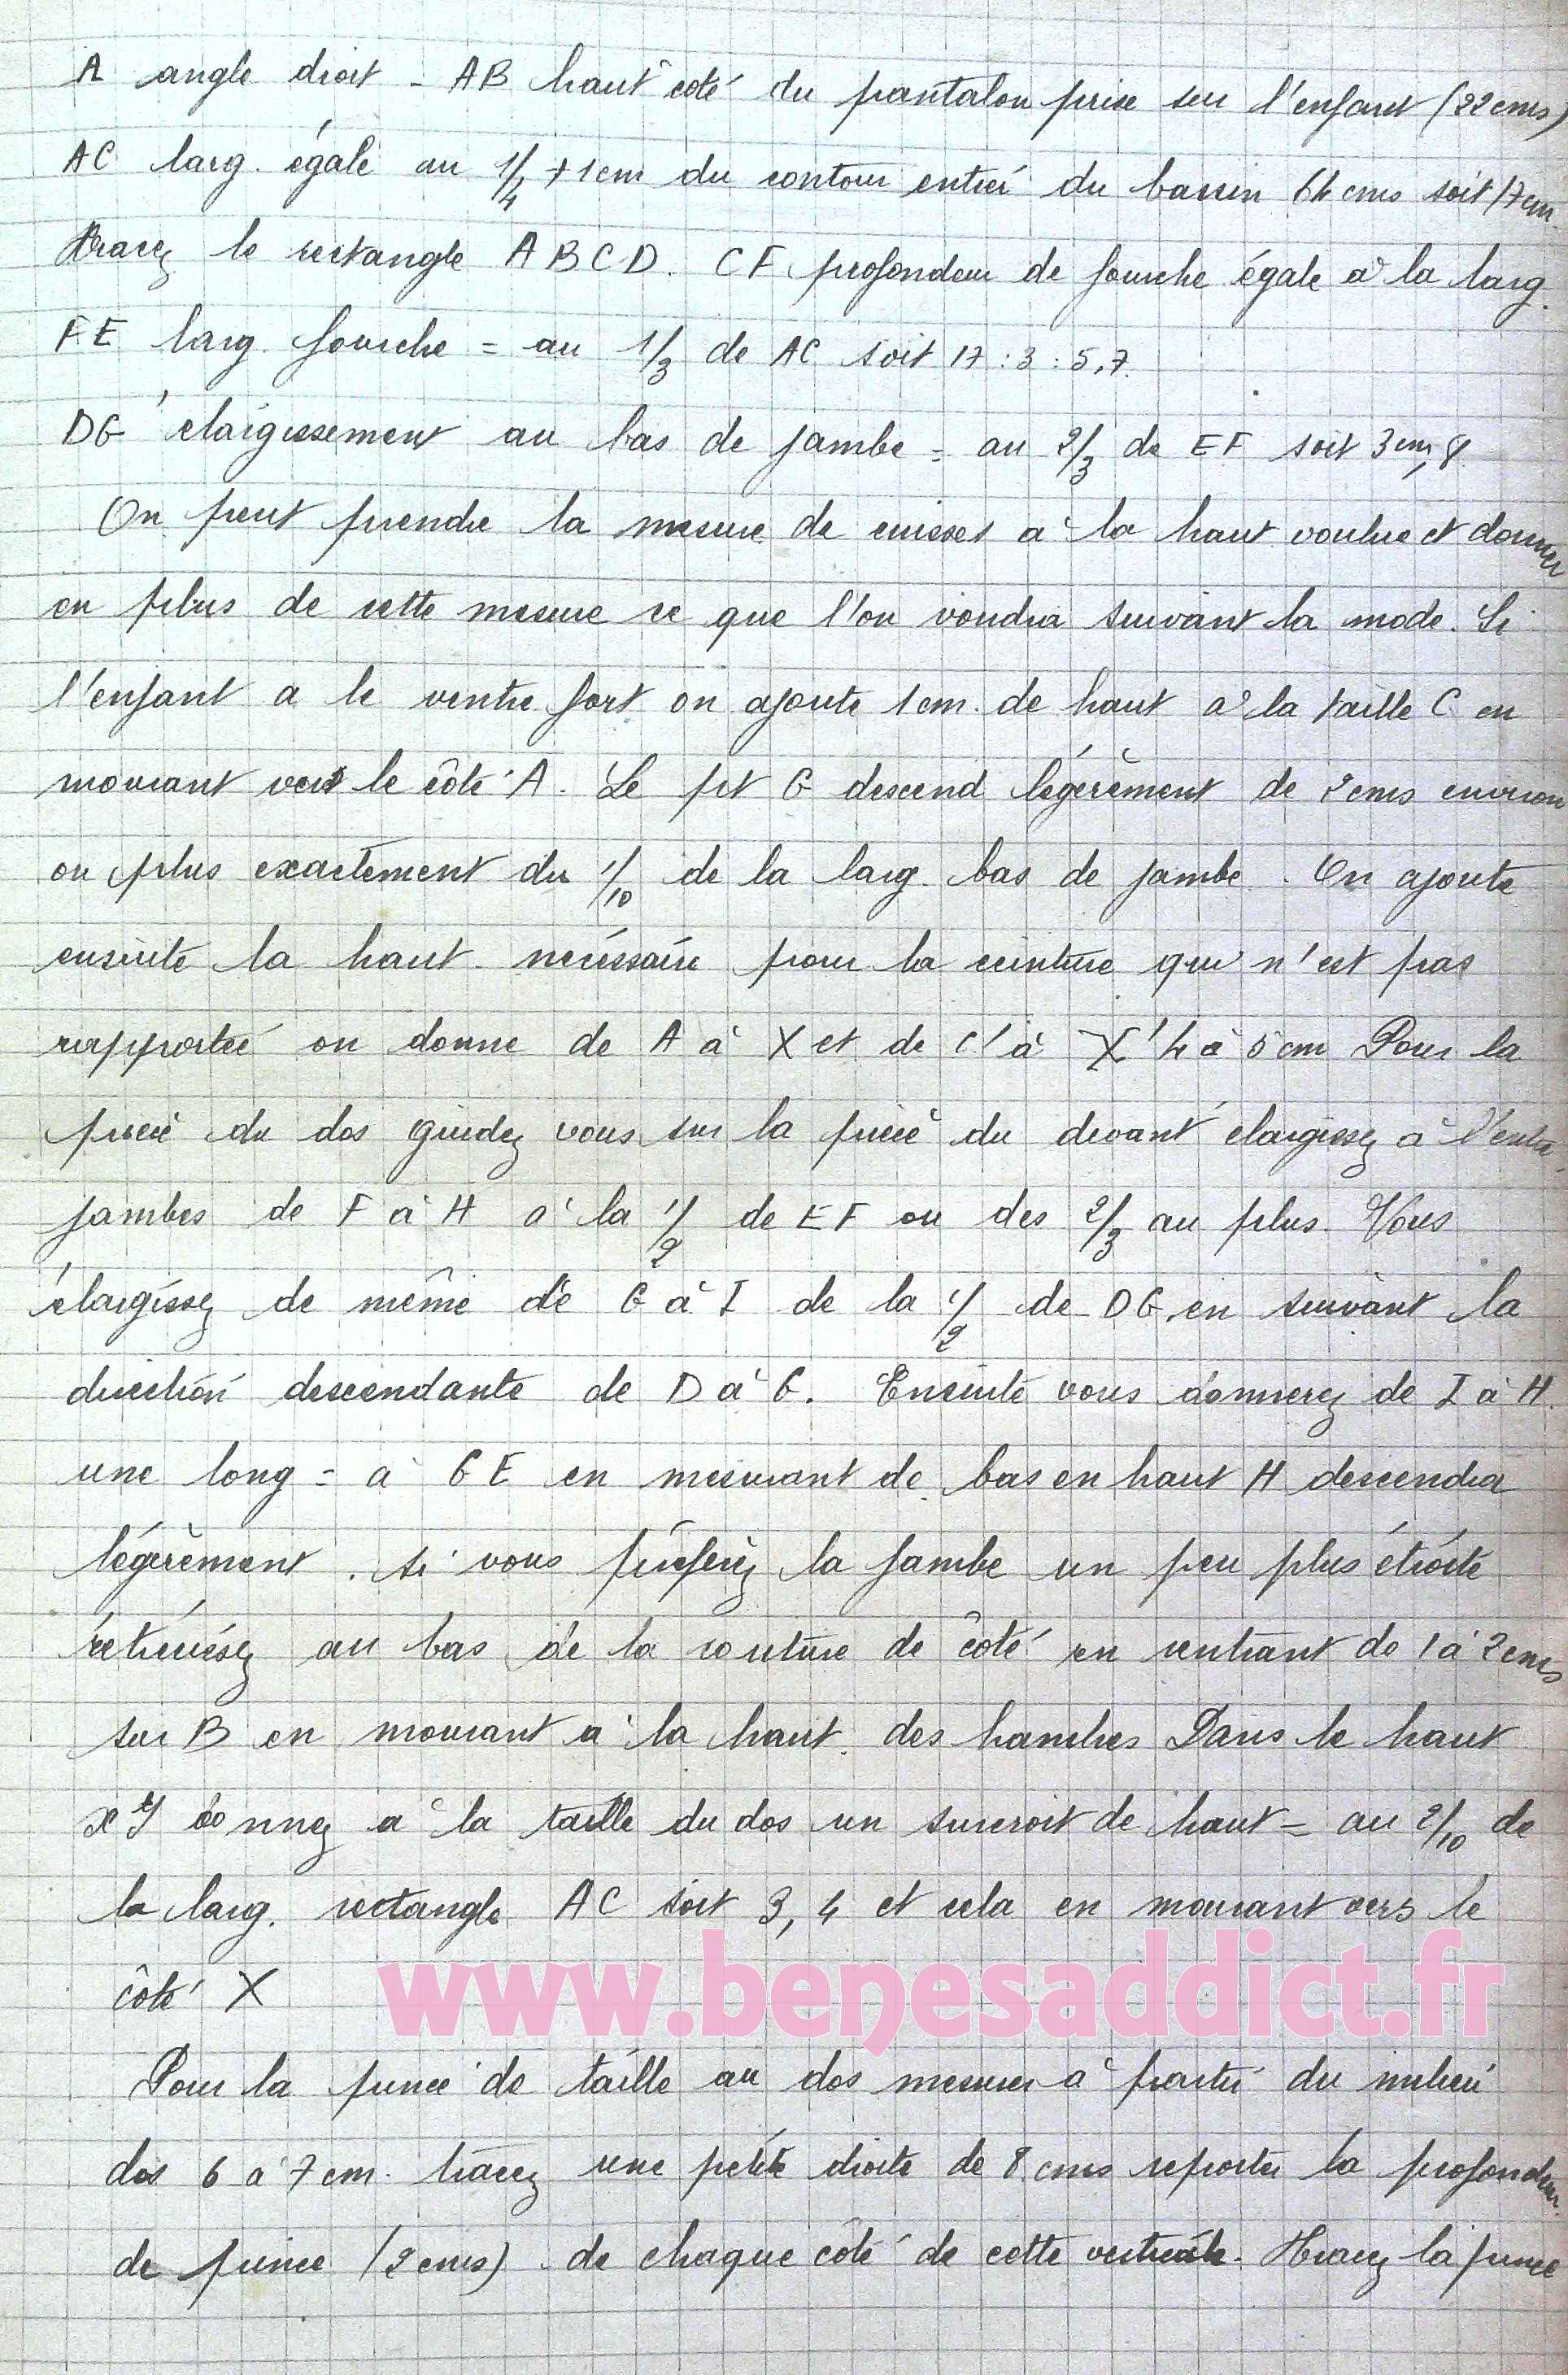 A angle droit - AB haut côté du pantalon prise sur l'enfant (22 cms)
AC larg. égale au 1/4 + 1cm du contour entier du bassin 64 cms soit 17cm.
Tracez le rectangle ABCD. CF profondeur de fourche égale à la larg.
FE larg. fourche = au 1/3 de AC soit 17 : 3 : 5,7.
DG élargissement au bas de jambe = au 2/3 de EF soit 3cm,8
On peut prendre la mesure de cuisses à la haut. voulue et donner
en plus de cette mesure ce que l'on voudra suivant la mode. Si
l'enfant a le ventre fort on ajoute 1cm. de haut à la taille C en
mourant vers le côté A. Le pt G descend légèrement de 2cms environ
ou plus exactement du 1/10 de la larg. bas de jambe. On ajoute
ensuite la haut. nécessaire pour la ceinture qui n'est pas
rapportée on donne de A à X et de C' à X' 4 à 5 cm Pour la
pièce du dos guidez vous sur la pièce du devant élargissez à l'entre
jambes de F à H à la 1/2 de EF ou des 2/3 au plus. Vous
élargissez de même de G à I de la 1/2 de DG en suivant la
direction descendante de D à G. Ensuite vous donnerez de I à H.
une long = à GE en mesurant de bas en haut H descendra
légèrement. si vous préférez la jambe un peu plus étroite
rétrécissez au bas de la couture de côté en rentrant de 1 à 2cms
sur B en mourant à la haut. des hanches Dans le haut
donnez à la taille du dos un surcroit de haut = au 2/10 de
la larg. rectangle AC soit 3,4 et cela en mourant vers le
côté X
www.benesaddict.fr
Pour la pince de taille au dos mesurer à partir du milieu
dos 6 à 7 cm. tracez une petite droite de 8 cms reporter la profondeur
de pince (2 cms). de chaque côté de cette verticale. Tracez la pince